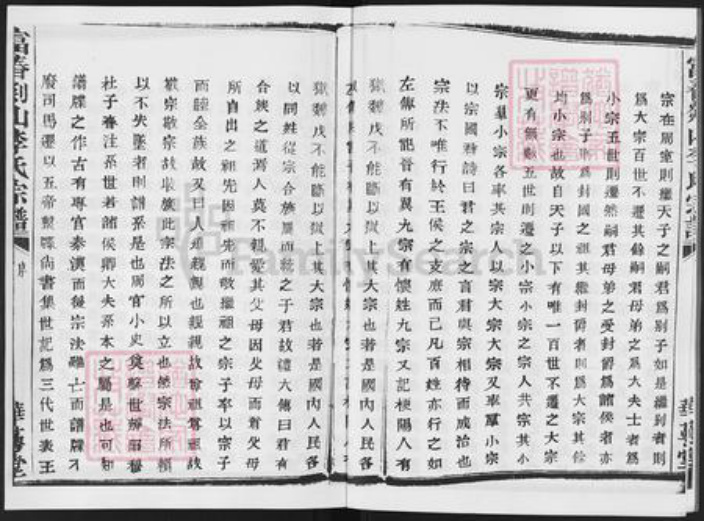 宗在周室則繼天子之嗣君爲別子如是繼別者則
爲大宗百世不遷其餘嗣君母弟之爲大夫士者爲
小宗五世則遷然嗣君母弟之受封爵爲諸侯者亦
爲別子則爲封國之祖其繼封爵者則爲大宗其餘
均小宗也故自天子以下有唯一百世不遷之大宗
更有無數五世則遷之小宗小宗之宗人共宗其小
宗羣小宗各率其宗人以宗大宗大宗又率羣小宗
以宗國君詩曰君之宗之言君與宗相待而成治也
宗法不唯行於王侯之支庶而已凡百姓亦行之如
左傳所記晉有翼九宗有懷姓九宗又記梗陽人有
獄魏戊不能斷以獄上其大宗也者是國內人民各
獄魏戊不能斷以獄上其大宗也者是國內人民各
以同姓從宗合族屬而統之于君故禮大傳曰君有
合族之道焉人莫不親愛其父母因父母而者父母
所自出之祖先因祖先而敬繼祖之宗子率以宗子
而睦全族故又曰人道親親也親親故尊祖尊祖故
敬宗敬宗故收族此宗法之所以立也然宗法所賴
以不失墜者則譜系是也周官小史奠繫世辨昭穆
杜子春注系世若諸侯卿大夫系本之屬是也可知
譜牒之作古有專官秦漢而後宗法雖亡而譜牒不
廢司馬遷以五帝繫牒尚書集世記爲三代世表王
富春剡山李氏宗譜
序
華萼堂
FamilySearch